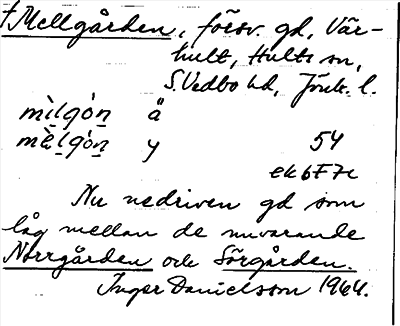 †Mellgården, försv. gd, Vär-
hult, Hults sn,
S.Vedbo hd, Jönk. l.
mìlgón ä
mèlgón y 54
ek 6F7c
Nu nedriven gd som
låg mellan de nuvarande
Norrgården och Sörgården.
Inger Danielsson 1964.